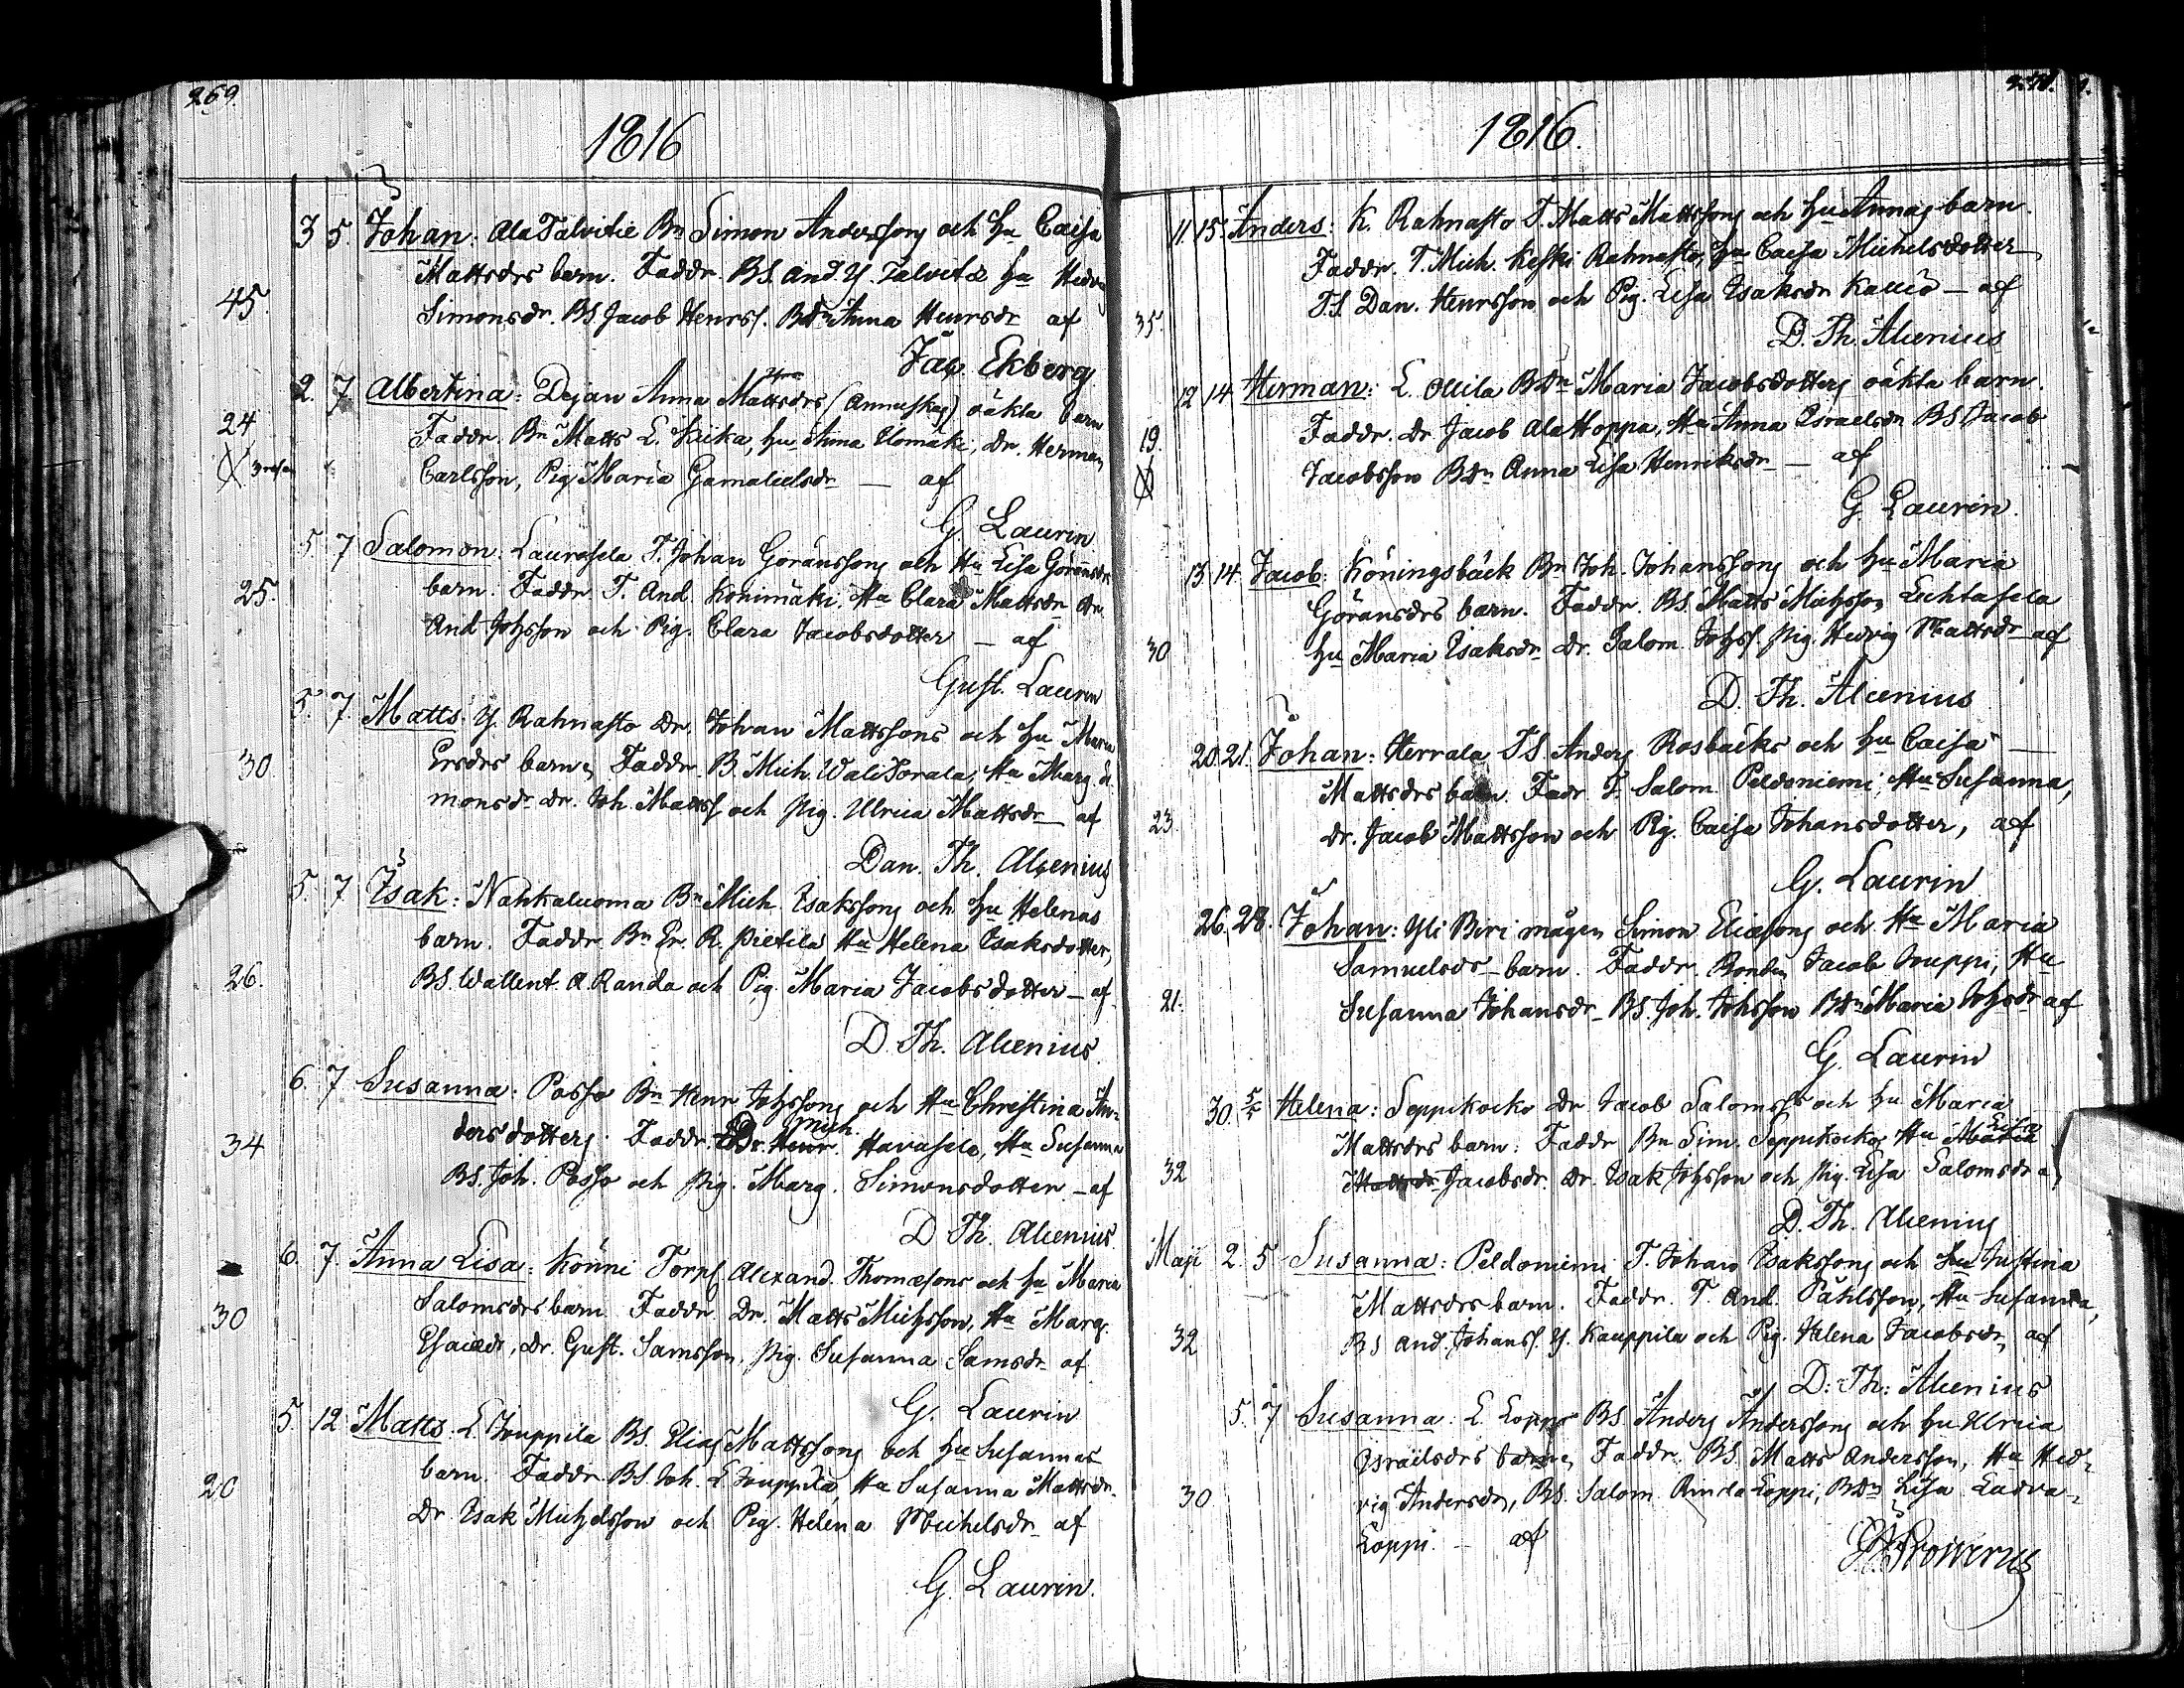 269
1816
3 5. Johan: Ala Talvitie Bn Simon Anderssons och Hu Caisa
Mattsdrs barn. Faddr. BS. And. Y. Talvitie Hu Hedv.
45. Simonsdr. BS Jacob Henrss. BDr Anna Henrsdr af
Jac. Ekberg
2. 7. Albertina: Dejan Anna Mattsdrs (Annuskas) oäkta barn
24 Faddr. Bn Matts L. Krika, Hu Anna Uomäki, Dr. Herman
Carlsson, Pig. Maria Gamalielsdr — af
G. Laurin
5. 7 Salomon: Laurosela T. Johan Göranssons och Hu Lisa Göransdrs
25. barn. Faddr. T. And. Könimäki. Hu Clara Mattsdr Dr.
And Johsson och Pig. Clara Jacobsdotter — af
Gust. Laurin
5. 7. Matts: Y. Rahnasto Dr. Johan Mattssons och Hu Maria
30. Ersdrs barn, Faddr. B. Mich. Wali Torala, Hu Marg. Si-
monsdr Dr. Joh. Matss. och Pig. Ulrica Mattsdr — af
Dan. Th. Alcenius
5. 7 Isak: Nahkaluoma Bn Mich. Isakssons och Hu Helenas
barn. Faddr. Bn Er. R. Pietilä Hu Helena Isaksdotter,
26. BS. Wallent. A. Randa och Pig. Maria Jacobsdotter — af
D. Th. Alcenius
6. 7 Susanna: Passo Bn Henr Johssons och Hu Christina An-
dersdotters. Faddr. Dr. Henr. Mich. Havasela, Hu Susanna
34 BS. Joh. Passo och Pig. Marg. Simonsdotter — af
D Th. Alcenius
6. 7. Anna Lisa: Könni Torps. Alexand. Thomasons och Hu Maria
30 Salomsdrs barn Faddr. Dr. Matts Michsson, Hu Marg.
Esaiædr, Dr. Gust. Samsson, Pig. Susanna Samsdr af
G. Laurin
5. 12 Matts: L. Jouppila BS. Elias Mattssons och Hu Susannas
barn. Faddr. BS. Joh. L Jouppila, Hu Susanna Mattsdr.
20 Dr. Isak Michelsson och Pig. Helena Michelsdr af
G. Laurin.
1816.
11. 15. Anders: K. Rahnasto T. Matts Mattssons och Hu Annas barn.
Faddr. T. Mich. Keski Rahnasto, Hu Caisa Michelsdotter
35 T.S. Dan. Henrsson och Pig. Lisa Isaksdr — af
D. Th. Alcenius
12 14 Herman: L. Ollila BDr Maria Jacobsdotters oäkta barn.
19. Faddr. Dr Jacob Ala Hoppa, Hu Anna Israelsdr BS. Jacob
Jacobsson BDr Anna Lisa Henriksdr — af
G. Laurin.
13. 14. Jacob: Köningsbäck Bn Joh. Johanssons och Hu Maria
Göransdrs barn. Faddr. BS. Matts Michsson Luhtasela
30 Hu Maria Isaksdr Dr. Salom. Johss. Pig. Hedvig Mattsdr af
D. Th. Alcenius
20. 21. Johan: Herrala TS. Anders Rosbäcks och Hu Caisa —
Mattsdrs barn. Fadr. T. Salom. Peldoniemi, Hu Susanna,
23. Dr. Jacob Mattsson och Pig. Caisa Johansdotter, af
G. Laurin
26. 28. Johan: Yli Biri mågen Simon Eliæsons och Hu Maria
Samuelsdr barn. Faddr. Bonden Jacob Jouppi, Hu
21. Susanna Johansdr BS. Joh. Johsson BDr Maria Johsdr af
G. Laurin
30. 5/5 Helena: Seppikoko Dr Jacob Salomss och Hu Maria
Mattsdrs barn: Faddr Bn Sim. Seppikoko, Hu Maria Lisa
32 Mattsdr Jacobsdr. Dr. Isak Johsson och Pig. Lisa Salomsdr a
D. Th. Alcenius
Maji 2. 5 Susanna: Peldoniemi T. Johan Isakssons och Hu Justina
Mattsdrs barn. Faddr. T. And. Påhlsson, Hu Susanna,
32 BS And. Johanss. Y. Kauppila och Pig. Helena Jacobsdr, af
D: Th: Alcenius
5. 7 Susanna: L. Loppi BS. Anders Anderssons och Hu Ulrica
Israelsdrs barn, Faddr. BS. Matts Andersson, Hu Hed-
30 vig Andersdr, BS. Salom. Rinda Loppi, BDr Lisa Ladva-
Loppi. — af